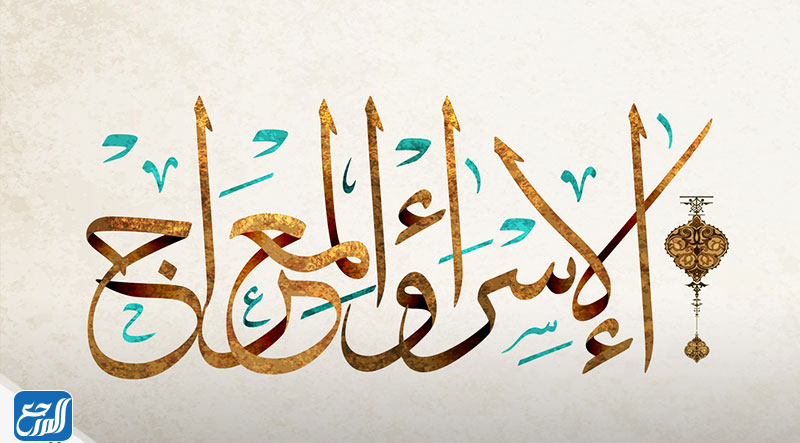 الإسراء والمعراج
المرجع